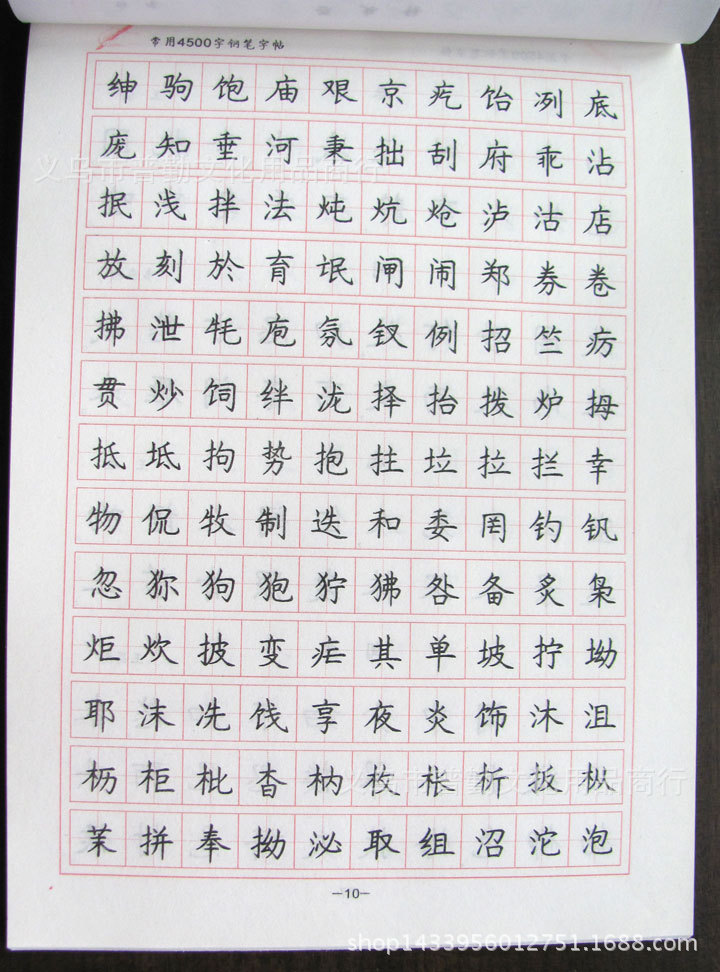 常用4500字钢笔字帖
绅驹饱庙艰京疙饴冽底
庞知垂河秉拙刮府乖沾
抿浅拌法炖炕炝泸沽店
放刻於育氓闸闹郑券卷
拂泄牦庖氛钗例招竺疠
贯炒饲绊泷择抬拨炉拇
抵坻拘势抱拄垃拉拦幸
物侃牧制迭和委罔钓钒
忽狝狗狍狞狒咎备炙枭
炬炊披变疟其单坡拧坳
耶沫冼饯享夜炎饰沐沮
枥柜枇杳枘枚枨析扳枞
茉拼奉拗泌取组沼沱泡
—10—
义乌市普勤文化用品商行
义乌市普勤文化用品商行
shop1433956012751.1688.com